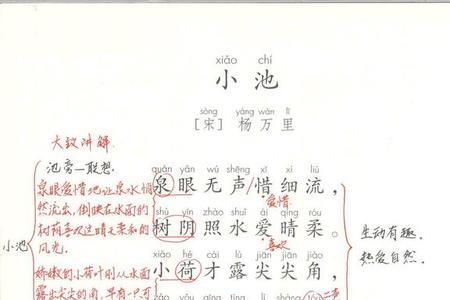 xiǎo chí
小池
sòng yáng wàn lǐ
[宋] 杨万里
大致讲解
池旁—联想
quán yǎn wú shēng xī xì liú
泉眼无声/惜细流，
爱惜
泉眼爱惜地让泉水悄
然流出，倒映在水面的
树荫喜欢这晴天柔和的
风光。
shù yīn zhào shuǐ ài qíng róu
树阴照水爱晴柔。
喜欢
小池
生动有趣。
热爱自然。
xiǎo hé cái lù jiān jiān jiǎo
小荷才露尖尖角，
娇嫩的小荷叶刚从水面
露出尖尖的角，早有一只可